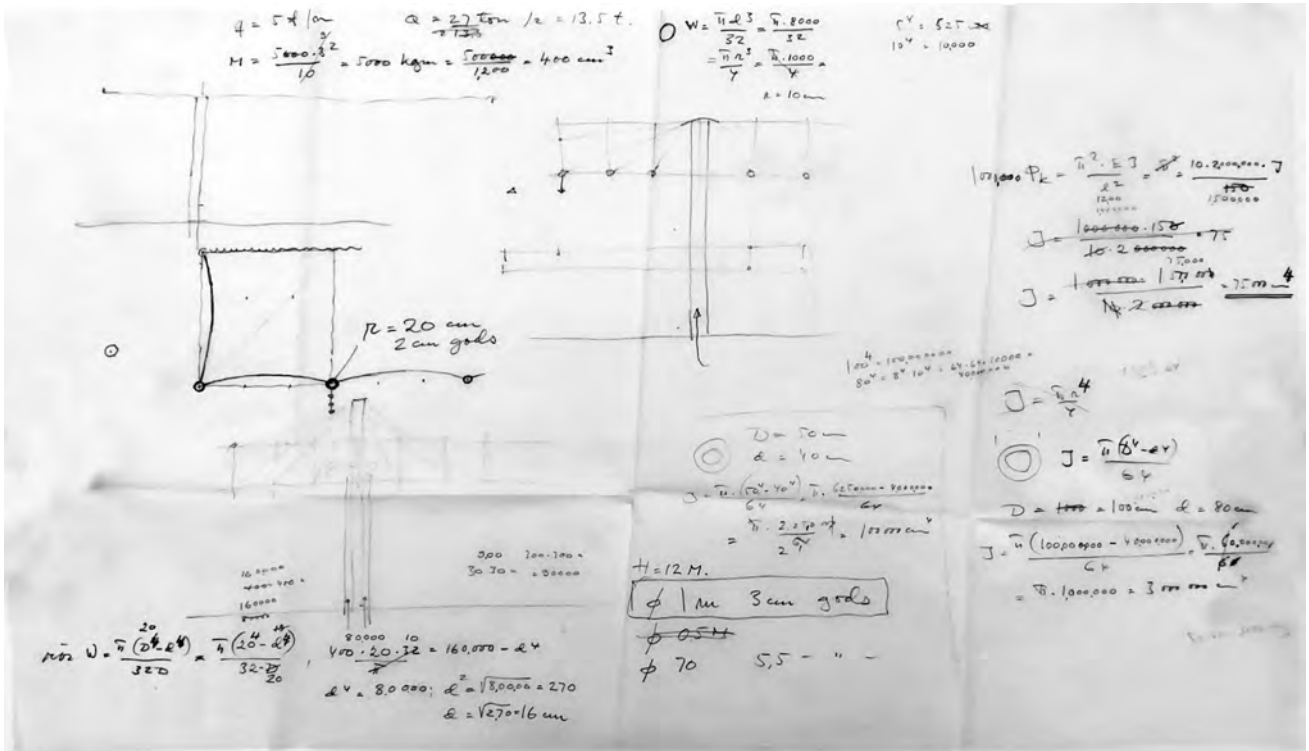 q = 5 t/m
Q = 27 ton /2 = 13.5 t.
M = 5000·3² / 10 = 5000 kgm = 500000 / 1,200 = 400 cm³
W = π d³ / 32 = π·8000 / 32
= π r³ / 4 = π·1000 / 4 =
r = 10 cm
5⁴ = 625
10⁴ = 10,000
P_k = π²·E J / l² = 10·2,000,000·J / 1,500,000
J = 1000000·150 / 10·2000000 = 75
75,000
= 7500 cm⁴
R = 20 cm
2 cm gods
100⁴ = 100,000,000
80⁴ = 8⁴·10⁴ = 64·64·10000 =
40000000
J = π r⁴ / 4
J = π(D⁴-d⁴) / 64
D = 100 cm d = 80 cm
J = π(100,000,000 - 40,000,000) / 64 = π·60,000,000
= π·1,000,000 = 3 000 000 cm⁴
D = 50 cm
d = 40 cm
J = π·(50⁴-40⁴) / 64 = π·6250000-4000000 / 64
= 100 000 cm⁴
H = 12 M.
φ 1 m 3 cm gods
φ 0.5 M
φ 70 5,5 - " -
300 300·300 =
30 30 = 90000
160000
400·400 =
160000
rör W = π(D⁴-d⁴) / 32D = π(20⁴-d⁴) / 32·20 , 400·20·32 / π = 160,000 - d⁴
80,000 10
d⁴ = 80000; d² = √80000 = 270
d = √270 = 16 cm